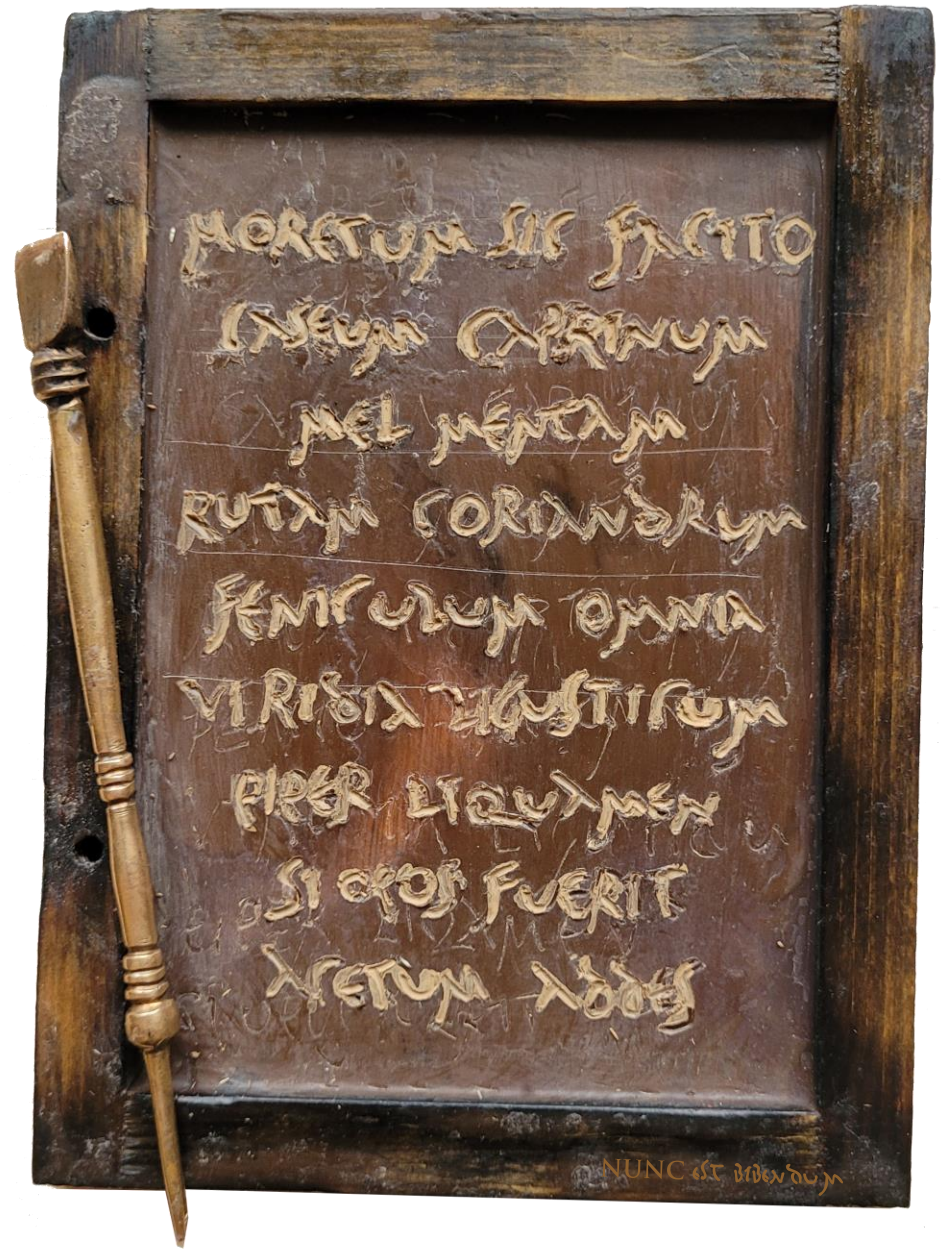 MORETUM SIC FACITO
CASEUM CAPRINUM
MEL MENTAM
RUTAM CORIANDRUM
FENICULUM OMNIA
VIRIDIA LIGUSTICUM
PIPER LIQUAMEN
SI OPOS FUERIT
ACETUM ADDES
NUNC EST BIBENDUM